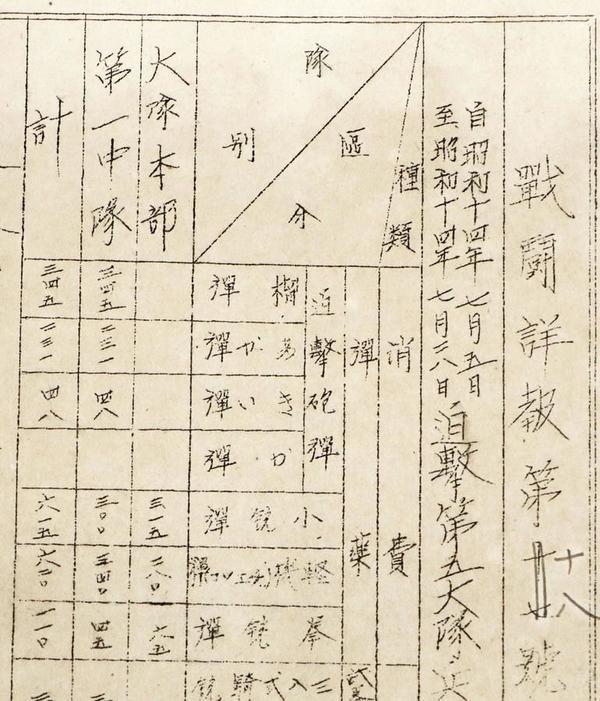 戰鬪詳報第十八號
自昭和十四年七月五日
至昭和十四年七月二八日
迫擊第五大隊
種類
區分
隊別
消費
彈藥
迫擊砲彈
榴彈
あか彈
きい彈
か彈
小銃彈
拳銃彈
三八式騎銃
大隊本部
三一五
二八〇
六五
第一中隊
三四五
二三一
四八
三〇〇
三四〇
四五
計
三四五
二三一
四八
六一五
六二〇
一一〇